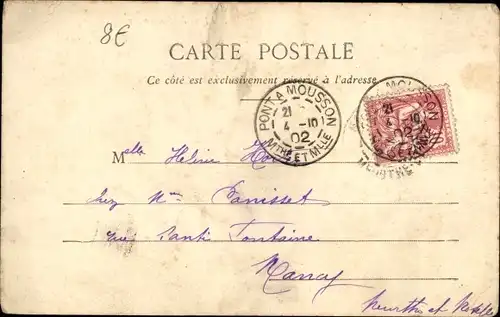 8€
CARTE POSTALE
Ce côté est exclusivement réservé à l'adresse
PONT A MOUSSON
21
4 -10
02
MTHE ET MLLE
MOUSSON
21
4 -10
02
Melle Helène
chez Mme Panisset
rue
Fontaine
Nancy
Meurthe et